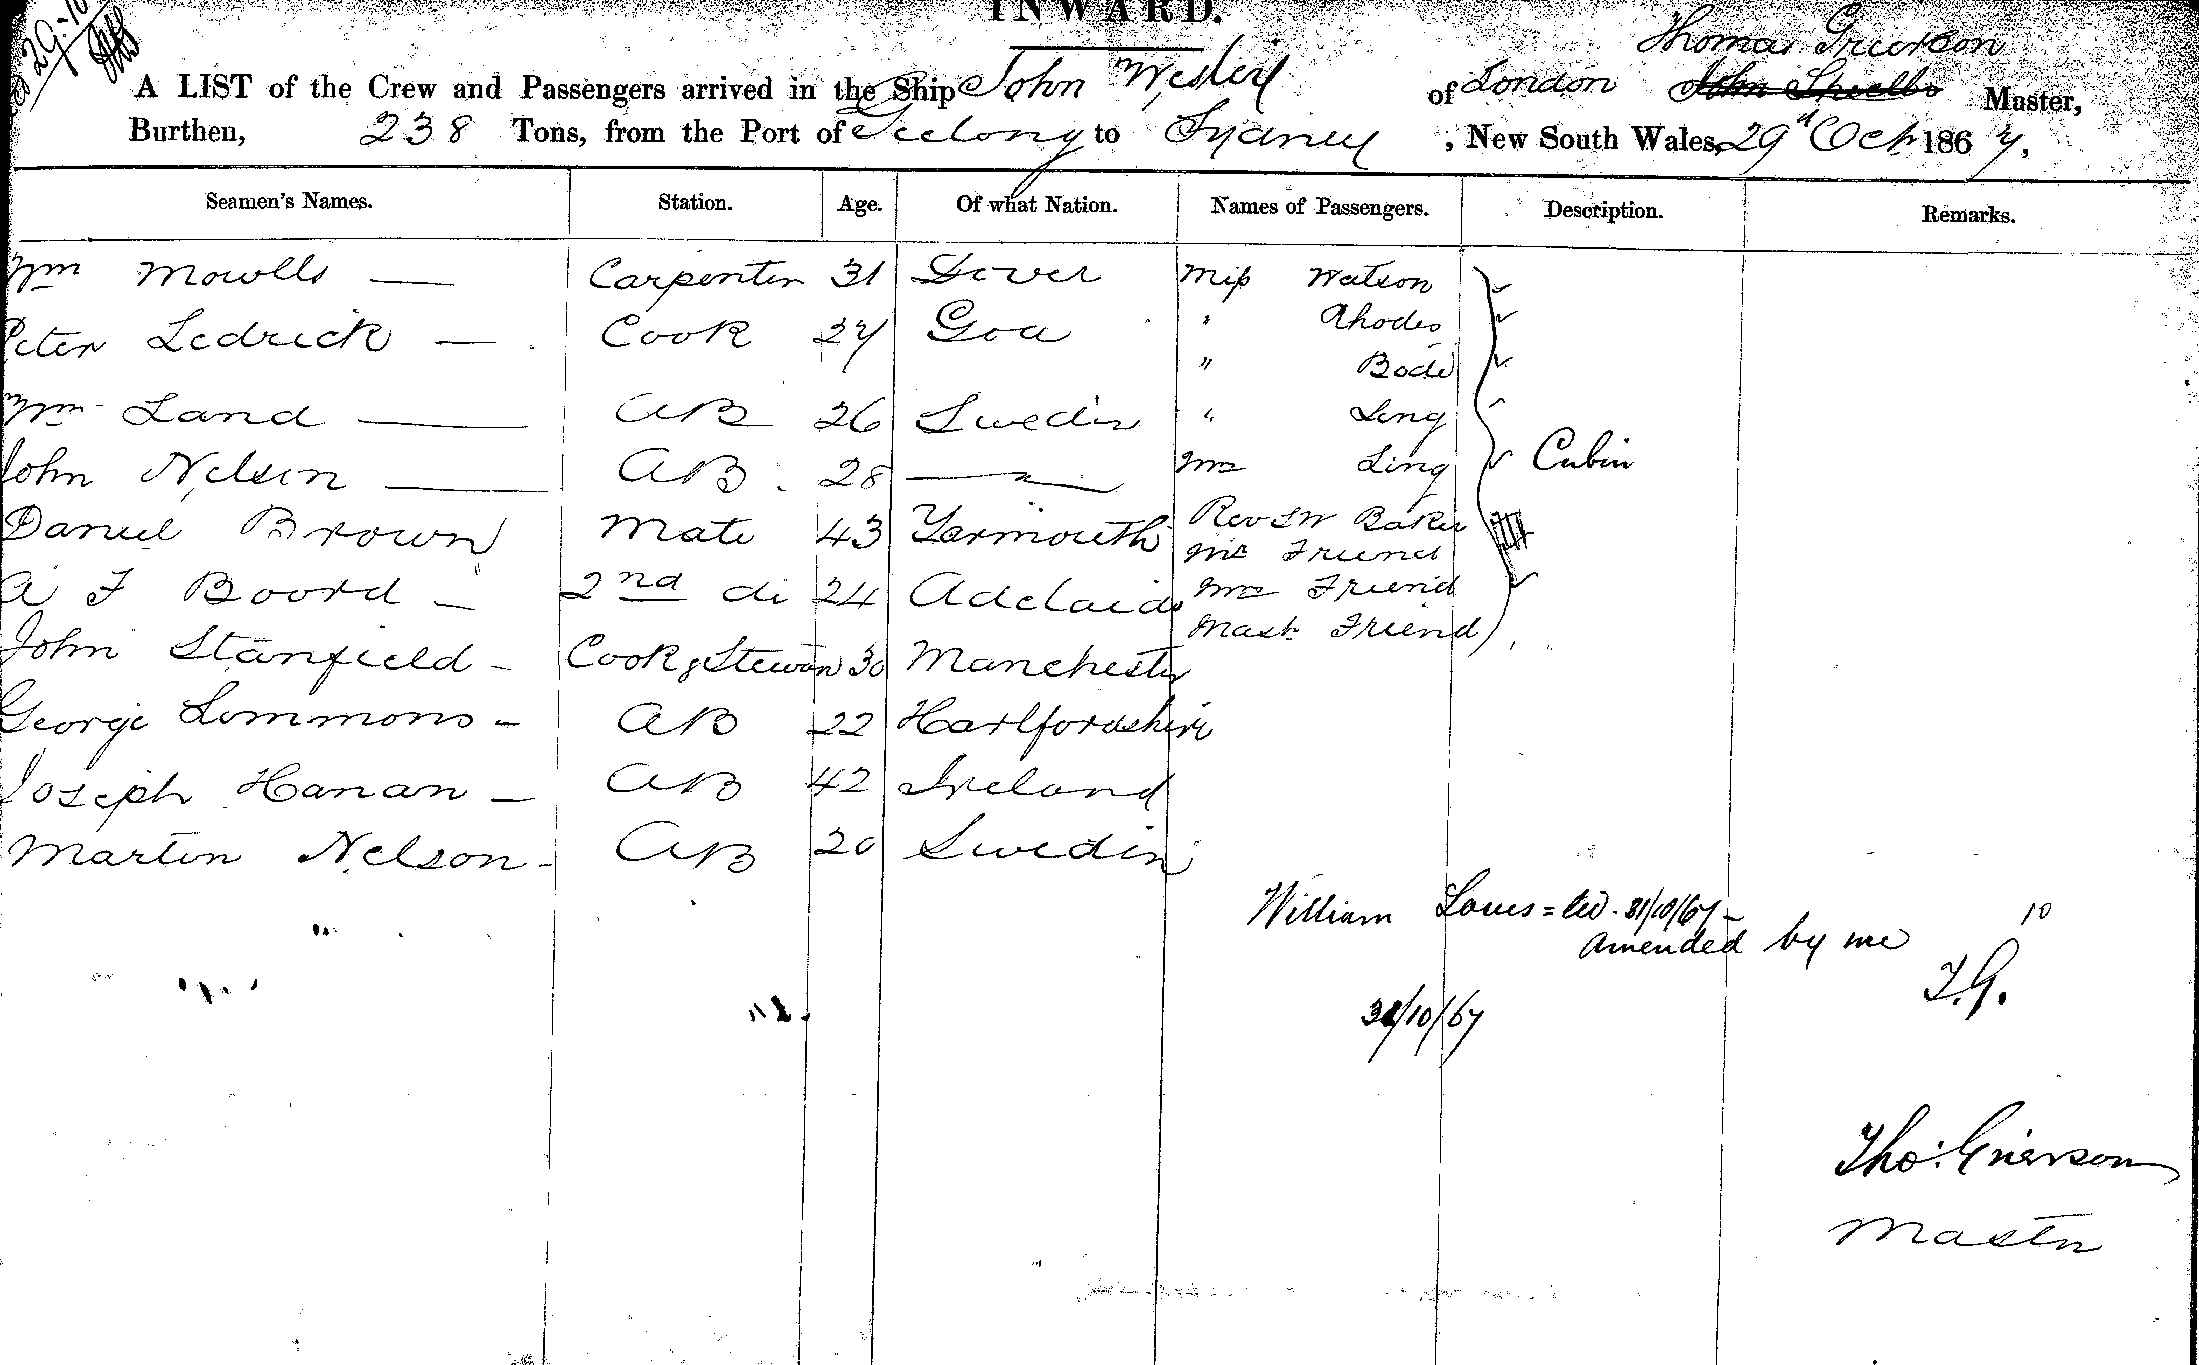 INWARD.
29.10
Thomas Grierson
A LIST of the Crew and Passengers arrived in the Ship John Wesley of London Master,
Burthen, 238 Tons, from the Port of Geelong to Sydney, New South Wales, 29th Oct 1867,
Seamen's Names. Station. Age. Of what Nation. Names of Passengers. Description. Remarks.
Wm Mowlls — Carpenter 31 Dover Miss Watson
" Rhodes
Peter Ledrick — Cook 27 Goa
" Bode
Wm Land — AB 26 Sweden " Ling
John Nelson — AB 28 — " — Mrs Ling Cabin
Daniel Brown Mate 43 Yarmouth Rev S W Baker
Mr Friend
A F Boord — 2nd do 24 Adelaide Mrs Friend
Mast Friend
John Stanfield - Cook & Steward 30 Manchester
George Lommons - AB 22 Hartfordshire
Joseph Hanan — AB 42 Ireland
Martin Nelson - AB 20 Sweden
William 31/10/67 -
10
amended by me
T.G.
31/10/67
Tho: Grierson
Master